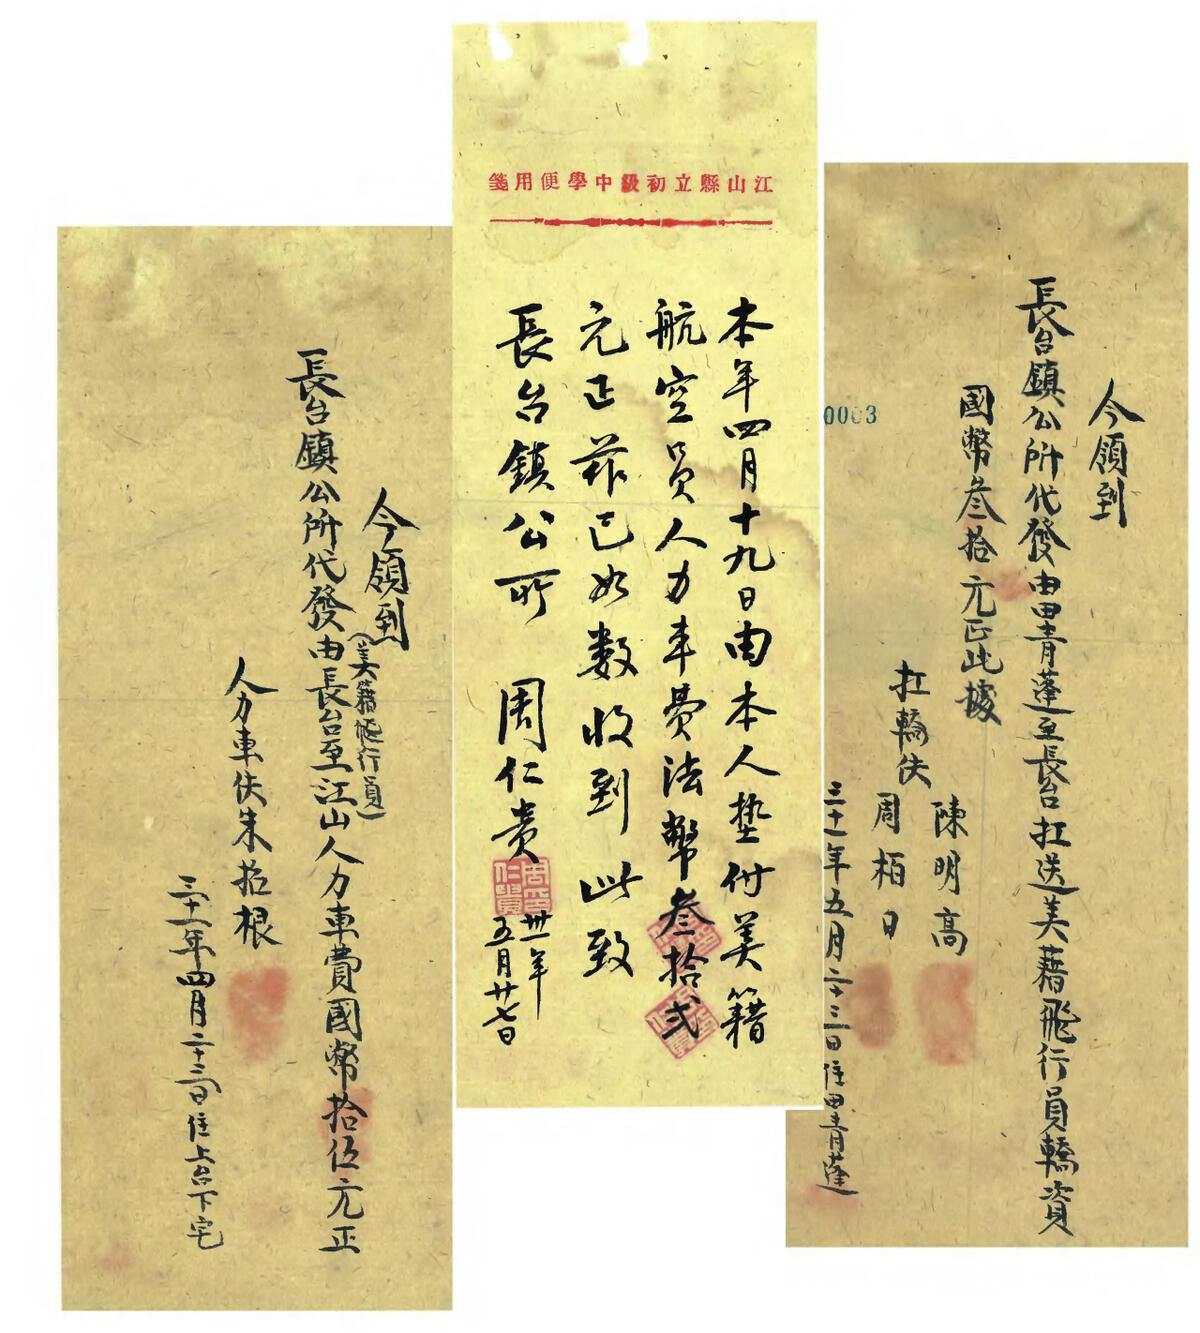 今領到
長台鎮公所代發由田青蓬至長台扛送美藉飛行員轎資
國幣叁拾元正此據
扛轎伕
陳明高
周柏日
三十一年五月二十三日住田青蓬
0003
江山縣立初級中學便用箋
本年四月十九日由本人墊付美籍
航空員人力車費法幣叁拾弍
元正茲已如數收到此致
長台鎮公所
周仁貴
卅一年
五月廿七日
今領到
(美籍飛行員)
長台鎮公所代發由長台至江山人力車費國幣拾伍元正
人力車伕朱拾根
三十一年四月二十三日住上台下宅